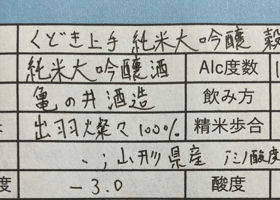 くどき上手 純米大吟醸
純米大吟醸酒 Alc度数
亀の井酒造 飲み方
出羽燦々100% 精米歩合
山形県産 酸度
度 -3.0 酸度